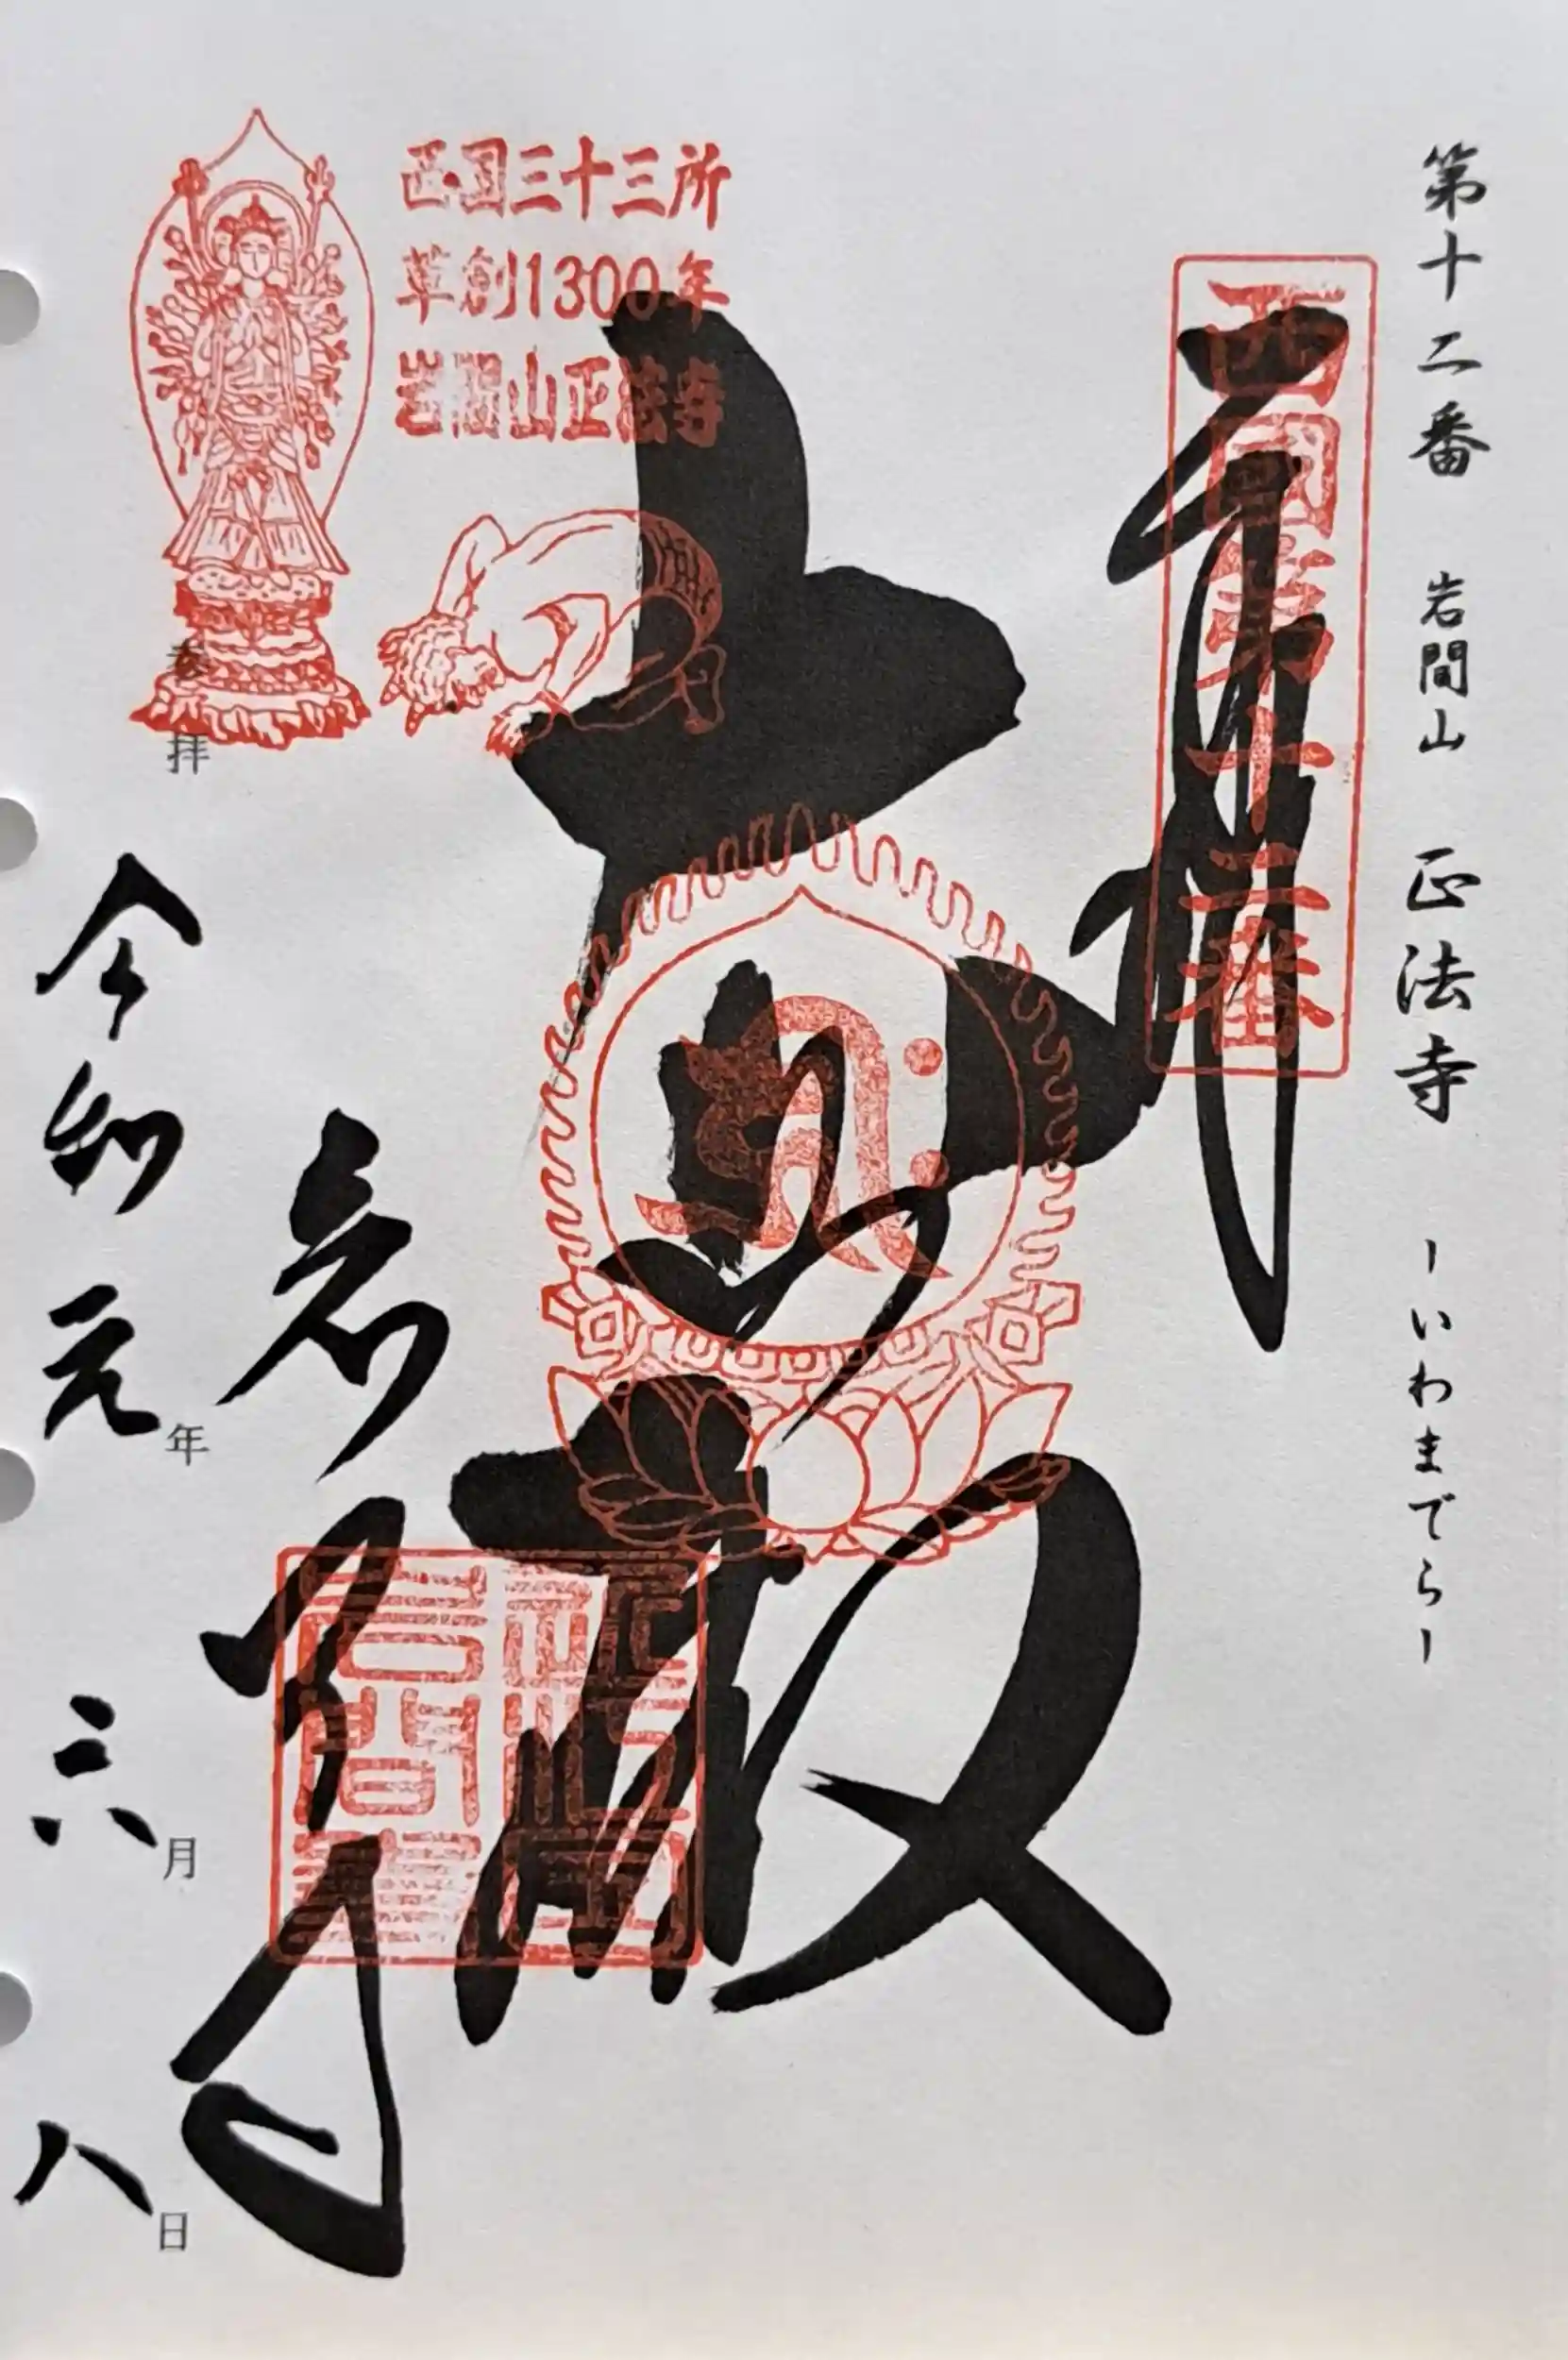 第十二番 岩間山 正法寺 ーいわまでらー
西国第十二番
奉拝
大悲殿
西国三十三所
草創1300年
岩間山正法寺
岩間寺
参拝 令和元年 六月 八日